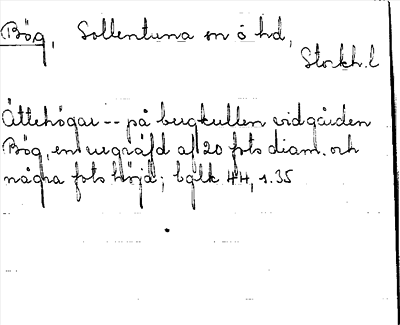 Bög, Sollentuna sn o hd,
Stockh. l
Ättehögar -- på bergkullen vid gården
Bög, en uppgräfd af 20 fots diam. och
några fots höjd; bglk 44, s. 35